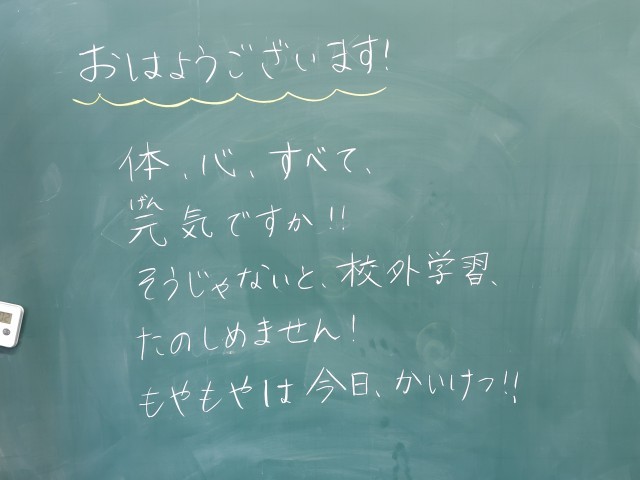 おはようございます!
体、心、すべて、
元気ですか!!
げん
そうじゃないと、校外学習、
たのしめません!
もやもやは今日、かいけつ!!